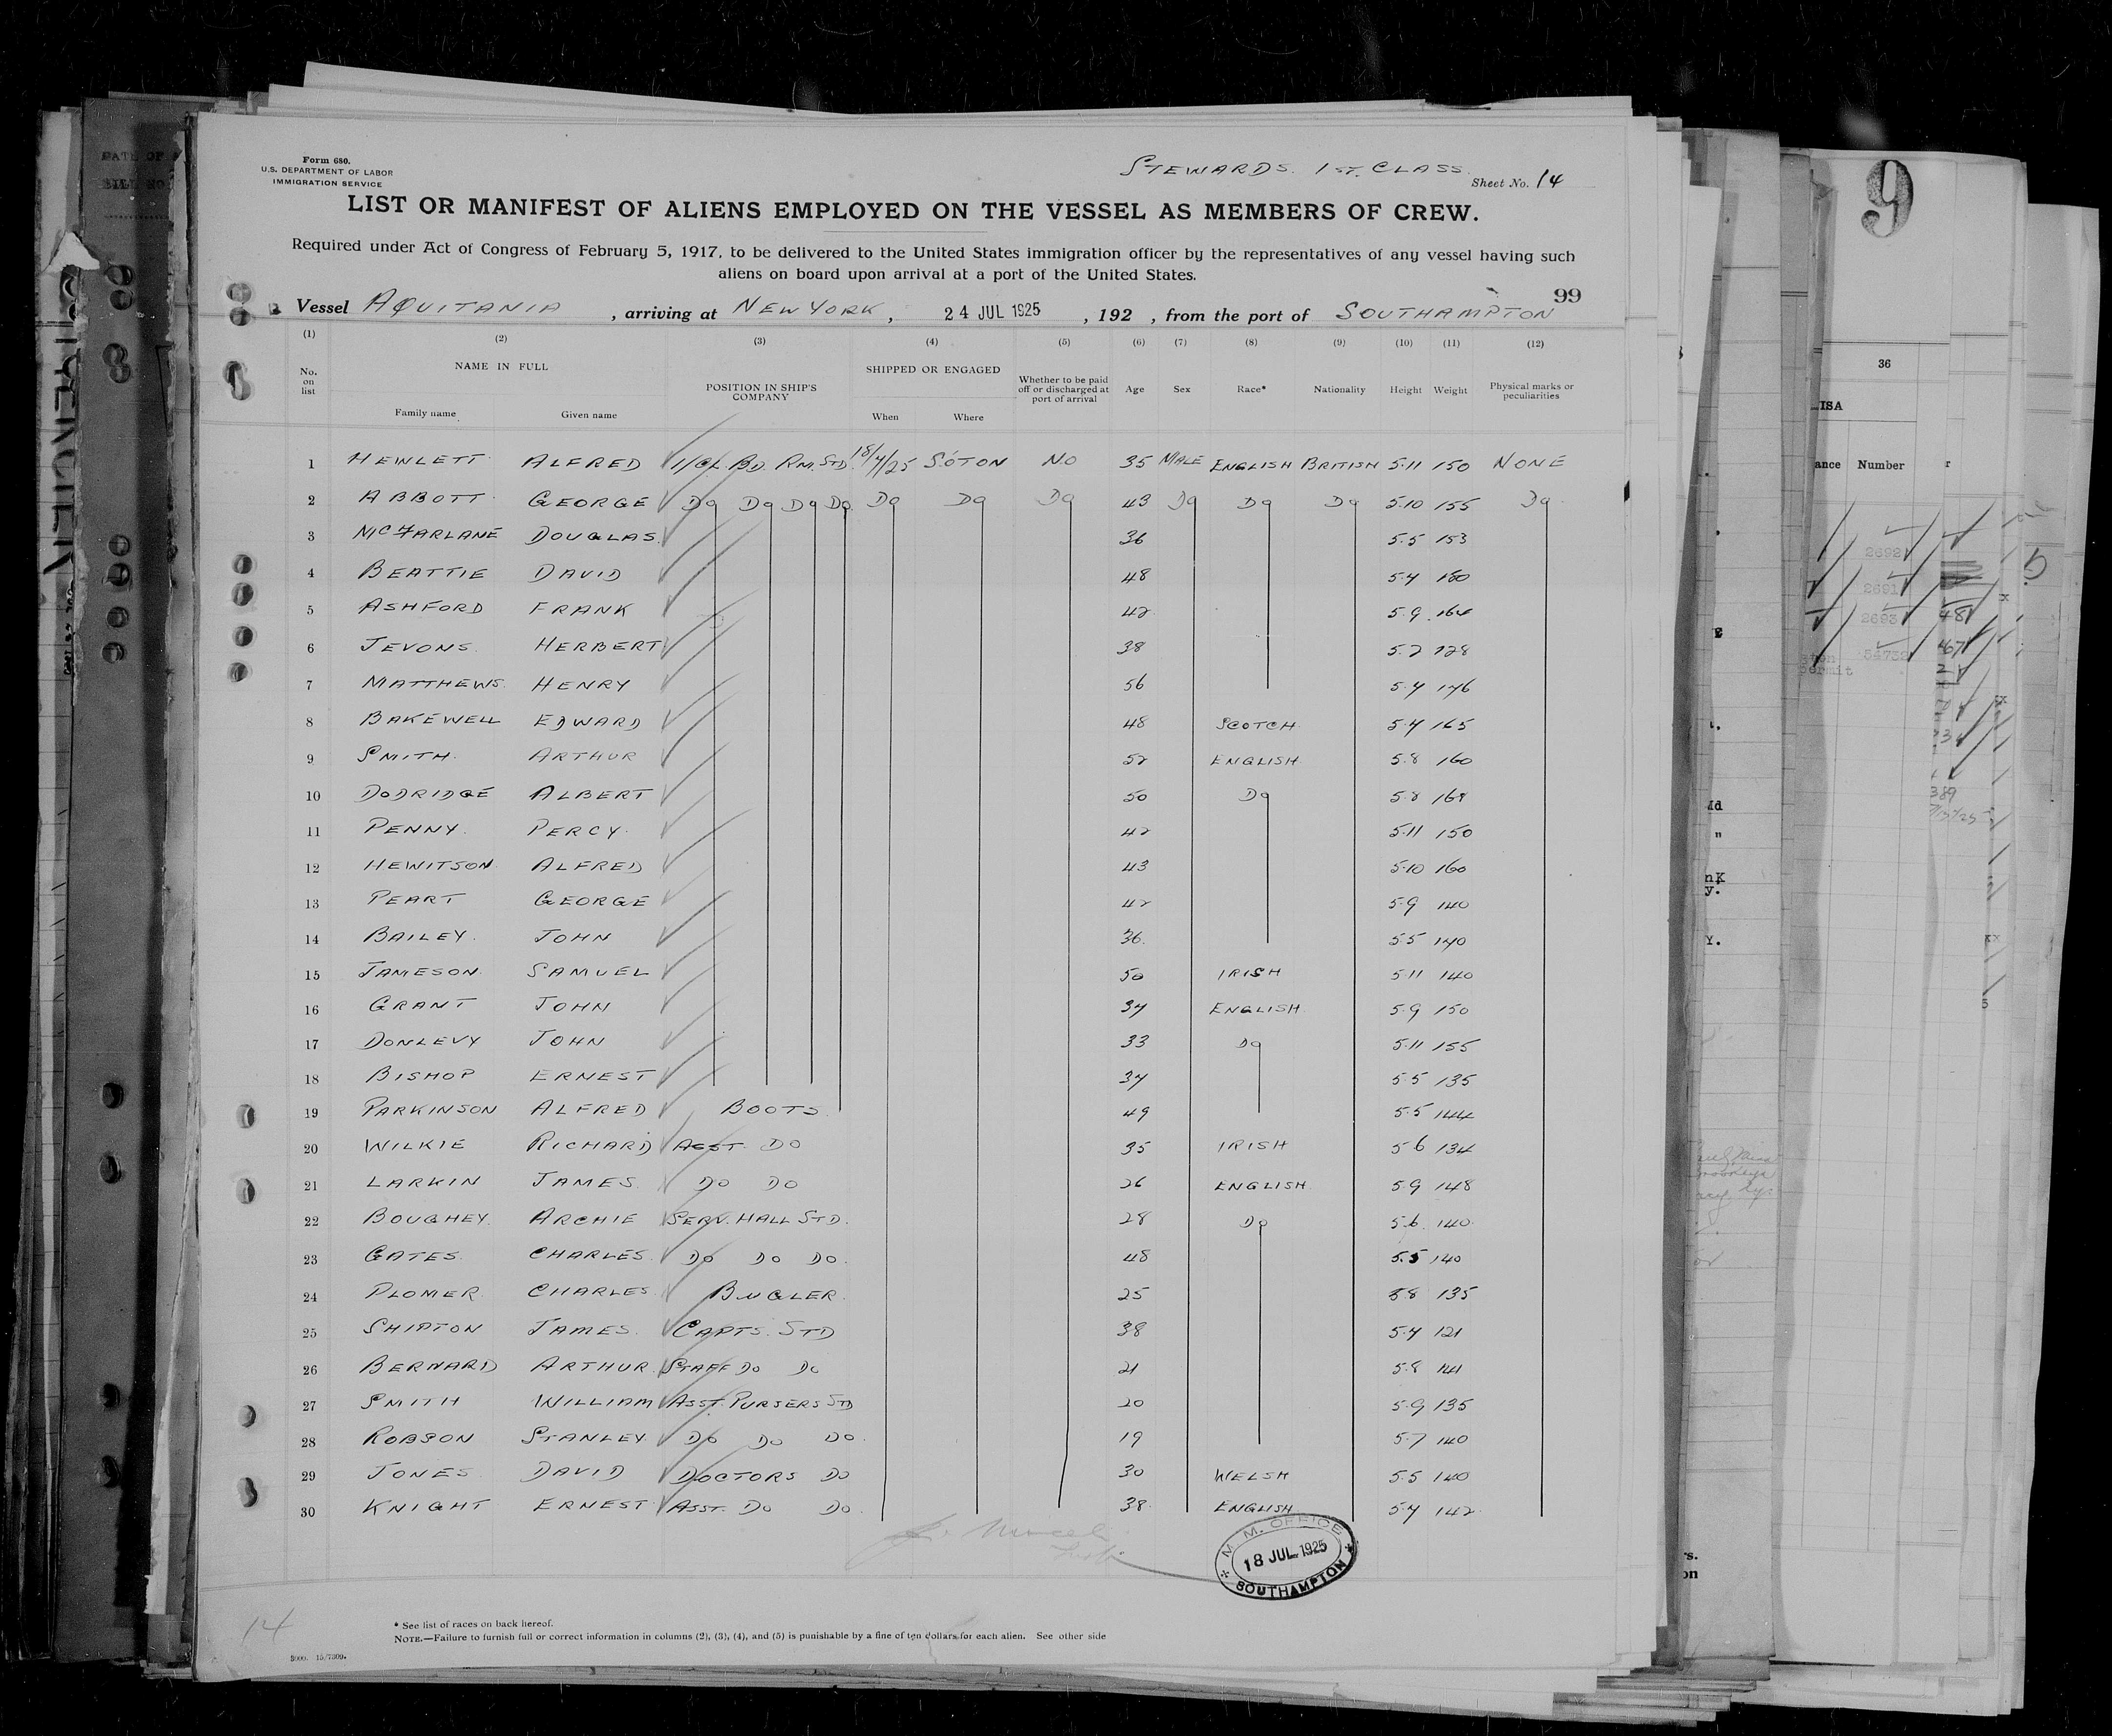 Form 680.
U.S. DEPARTMENT OF LABOR
IMMIGRATION SERVICE
STEWARDS. 1ST. CLASS
Sheet No. 14
LIST OR MANIFEST OF ALIENS EMPLOYED ON THE VESSEL AS MEMBERS OF CREW.
Required under Act of Congress of February 5, 1917, to be delivered to the United States immigration officer by the representatives of any vessel having such
aliens on board upon arrival at a port of the United States.
99
Vessel AQUITANIA, arriving at NEW YORK, 24 JUL 1925, 192 , from the port of SOUTHAMPTON
(1) (2) (3) (4) (5) (6) (7) (8) (9) (10) (11) (12)
No. on list NAME IN FULL Family name Given name POSITION IN SHIP'S COMPANY SHIPPED OR ENGAGED When Where Whether to be paid off or discharged at port of arrival Age Sex Race* Nationality Height Weight Physical marks or peculiarities
1 HEWLETT ALFRED 1/CL. BD. RM. STD. 18/7/25 S'OTON NO 35 MALE ENGLISH BRITISH 5.11 150 NONE
2 ABBOTT GEORGE DO DO DO DO DO DO DO 43 DO DO DO 5.10 155 DO
3 MCFARLANE DOUGLAS 36 5.5 153
4 BEATTIE DAVID 48 5.4 180
5 ASHFORD FRANK 42 5.9 164
6 JEVONS HERBERT 38 5.2 128
7 MATTHEWS HENRY 56 5.4 146
8 BAKEWELL EDWARD 48 SCOTCH 5.4 165
9 SMITH ARTHUR 52 ENGLISH 5.8 160
10 DODRIDGE ALBERT 50 DO 5.8 168
11 PENNY PERCY 42 5.11 150
12 HEWITSON ALFRED 43 5.10 160
13 PEART GEORGE 42 5.9 140
14 BAILEY JOHN 36 5.5 140
15 JAMESON SAMUEL 50 IRISH 5.11 140
16 GRANT JOHN 34 ENGLISH 5.9 150
17 DONLEVY JOHN 33 DO 5.11 155
18 BISHOP ERNEST 34 5.5 135
19 PARKINSON ALFRED BOOTS 49 5.5 144
20 WILKIE RICHARD ASST. DO 35 IRISH 5.6 134
21 LARKIN JAMES DO DO 26 ENGLISH 5.9 148
22 BOUGHEY ARCHIE SERV. HALL STD. 28 DO 5.6 140
23 GATES CHARLES DO DO DO 48 5.5 140
24 PLOMER CHARLES BUGLER 25 5.8 135
25 SHIPTON JAMES CAPTS. STD 38 5.4 121
26 BERNARD ARTHUR STAFF DO DO 21 5.8 141
27 SMITH WILLIAM ASST. PURSERS STD 20 5.9 135
28 ROBSON STANLEY DO DO DO 19 5.7 140
29 JONES DAVID DOCTORS DO 30 WELSH 5.5 140
30 KNIGHT ERNEST ASST. DO DO 38 ENGLISH 5.4 142
M. M. OFFICE
18 JUL 1925
SOUTHAMPTON
14
* See list of races on back hereof.
NOTE.—Failure to furnish full or correct information in columns (2), (3), (4), and (5) is punishable by a fine of ten dollars for each alien. See other side
9
36
Number
2692
2691
2693
54732